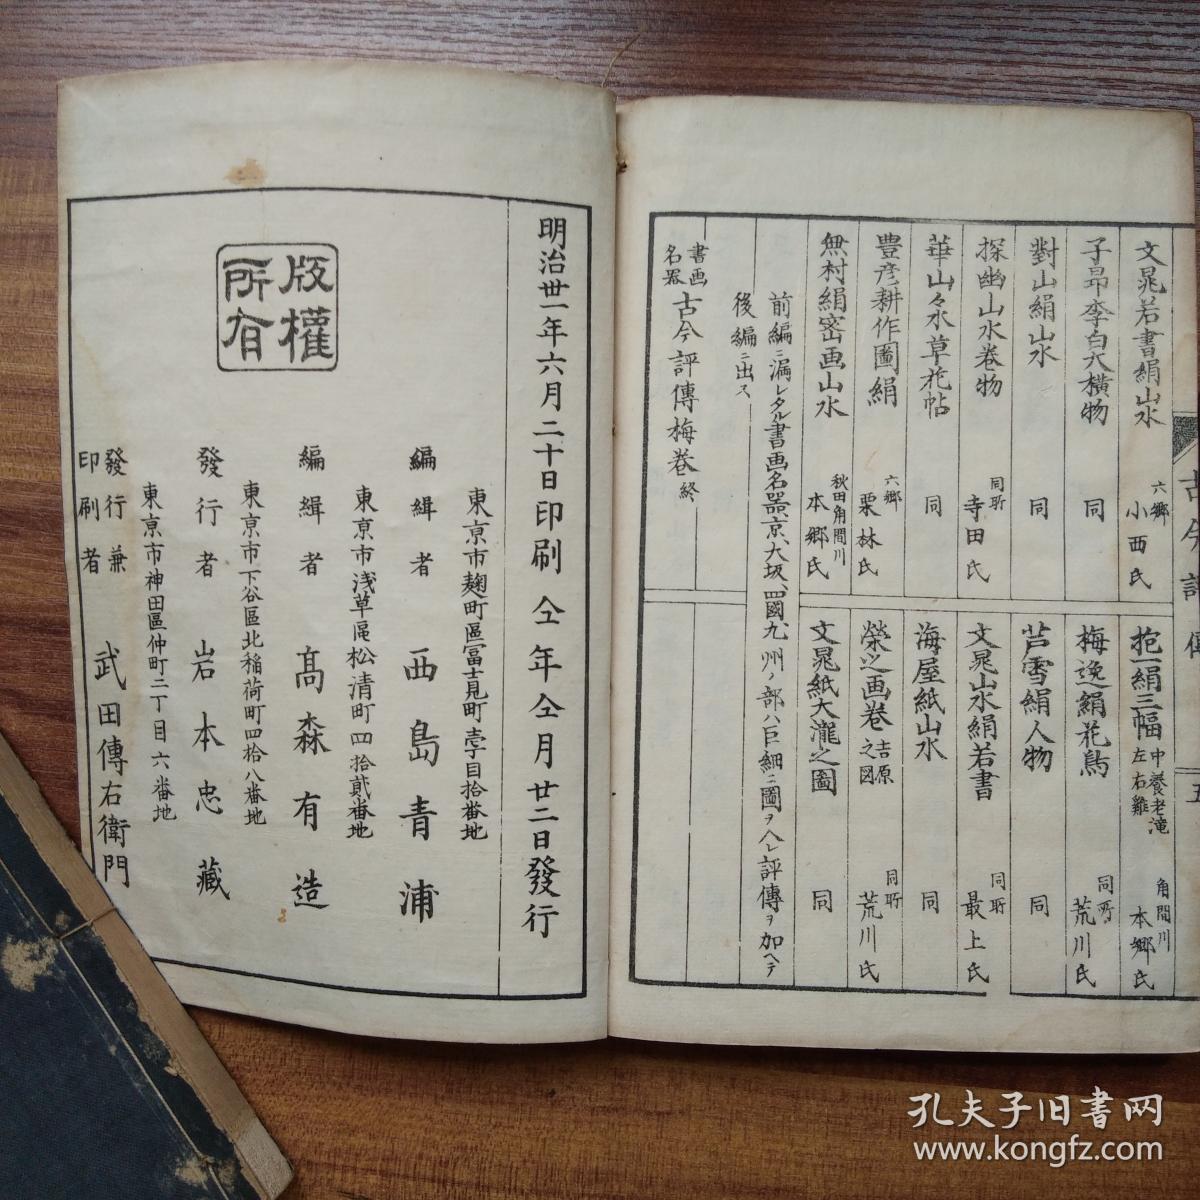 文晁若書絹山水 六郷 小西氏
子昻李白大横物 同
對山絹山水 同
探幽山水巻物 同所 寺田氏
華山々水草花帖 同
豊彦耕作圖絹 六郷 栗林氏
無村絹密画山水 秋田角間川 本郷氏
抱一絹三幅 中養老滝 左右雞 角間川 本郷氏
梅逸絹花鳥 同所 荒川氏
芦雪絹人物 同
文晁山水絹若書 同所 最上氏
海屋紙山水 同
榮之画巻 吉原之図 同所 荒川氏
文晁紙大瀧之圖 同
前編ニ漏レタル書画名器京、大坂、四國九州ノ部ハ巨細ニ圖ヲ入レ評傳ヲ加ヘテ
後編ニ出ス
書画名器 古今評傳梅巻終
古今評傳
五
明治丗一年六月二十日印刷 仝年仝月廿二日發行
東京市麹町區冨士見町壹丁目拾番地
編緝者 西島青浦
東京市浅草區松清町四拾貳番地
編緝者 髙森有造
東京市下谷區北稲荷町四拾八番地
發行者 岩本忠藏
東京市神田區仲町二丁目六番地
發行兼印刷者 武田傳右衛門
版權所有
孔夫子旧书网
www.kongfz.com